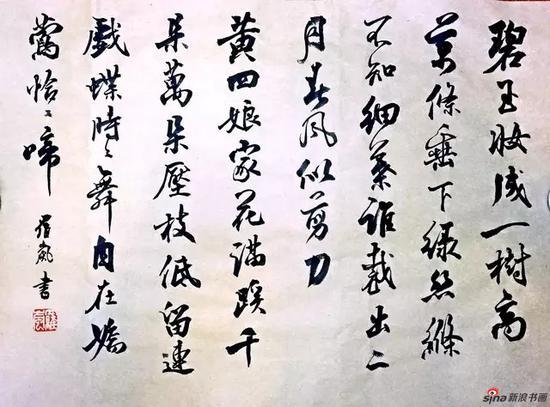 碧玉妝成一樹高
萬條垂下綠絲縧
不知細葉誰裁出二
月春風似剪刀
黃四娘家花滿蹊千
朵萬朵壓枝低留連
戲蝶時々舞自在嬌
鶯恰々啼
書
sina新浪书画